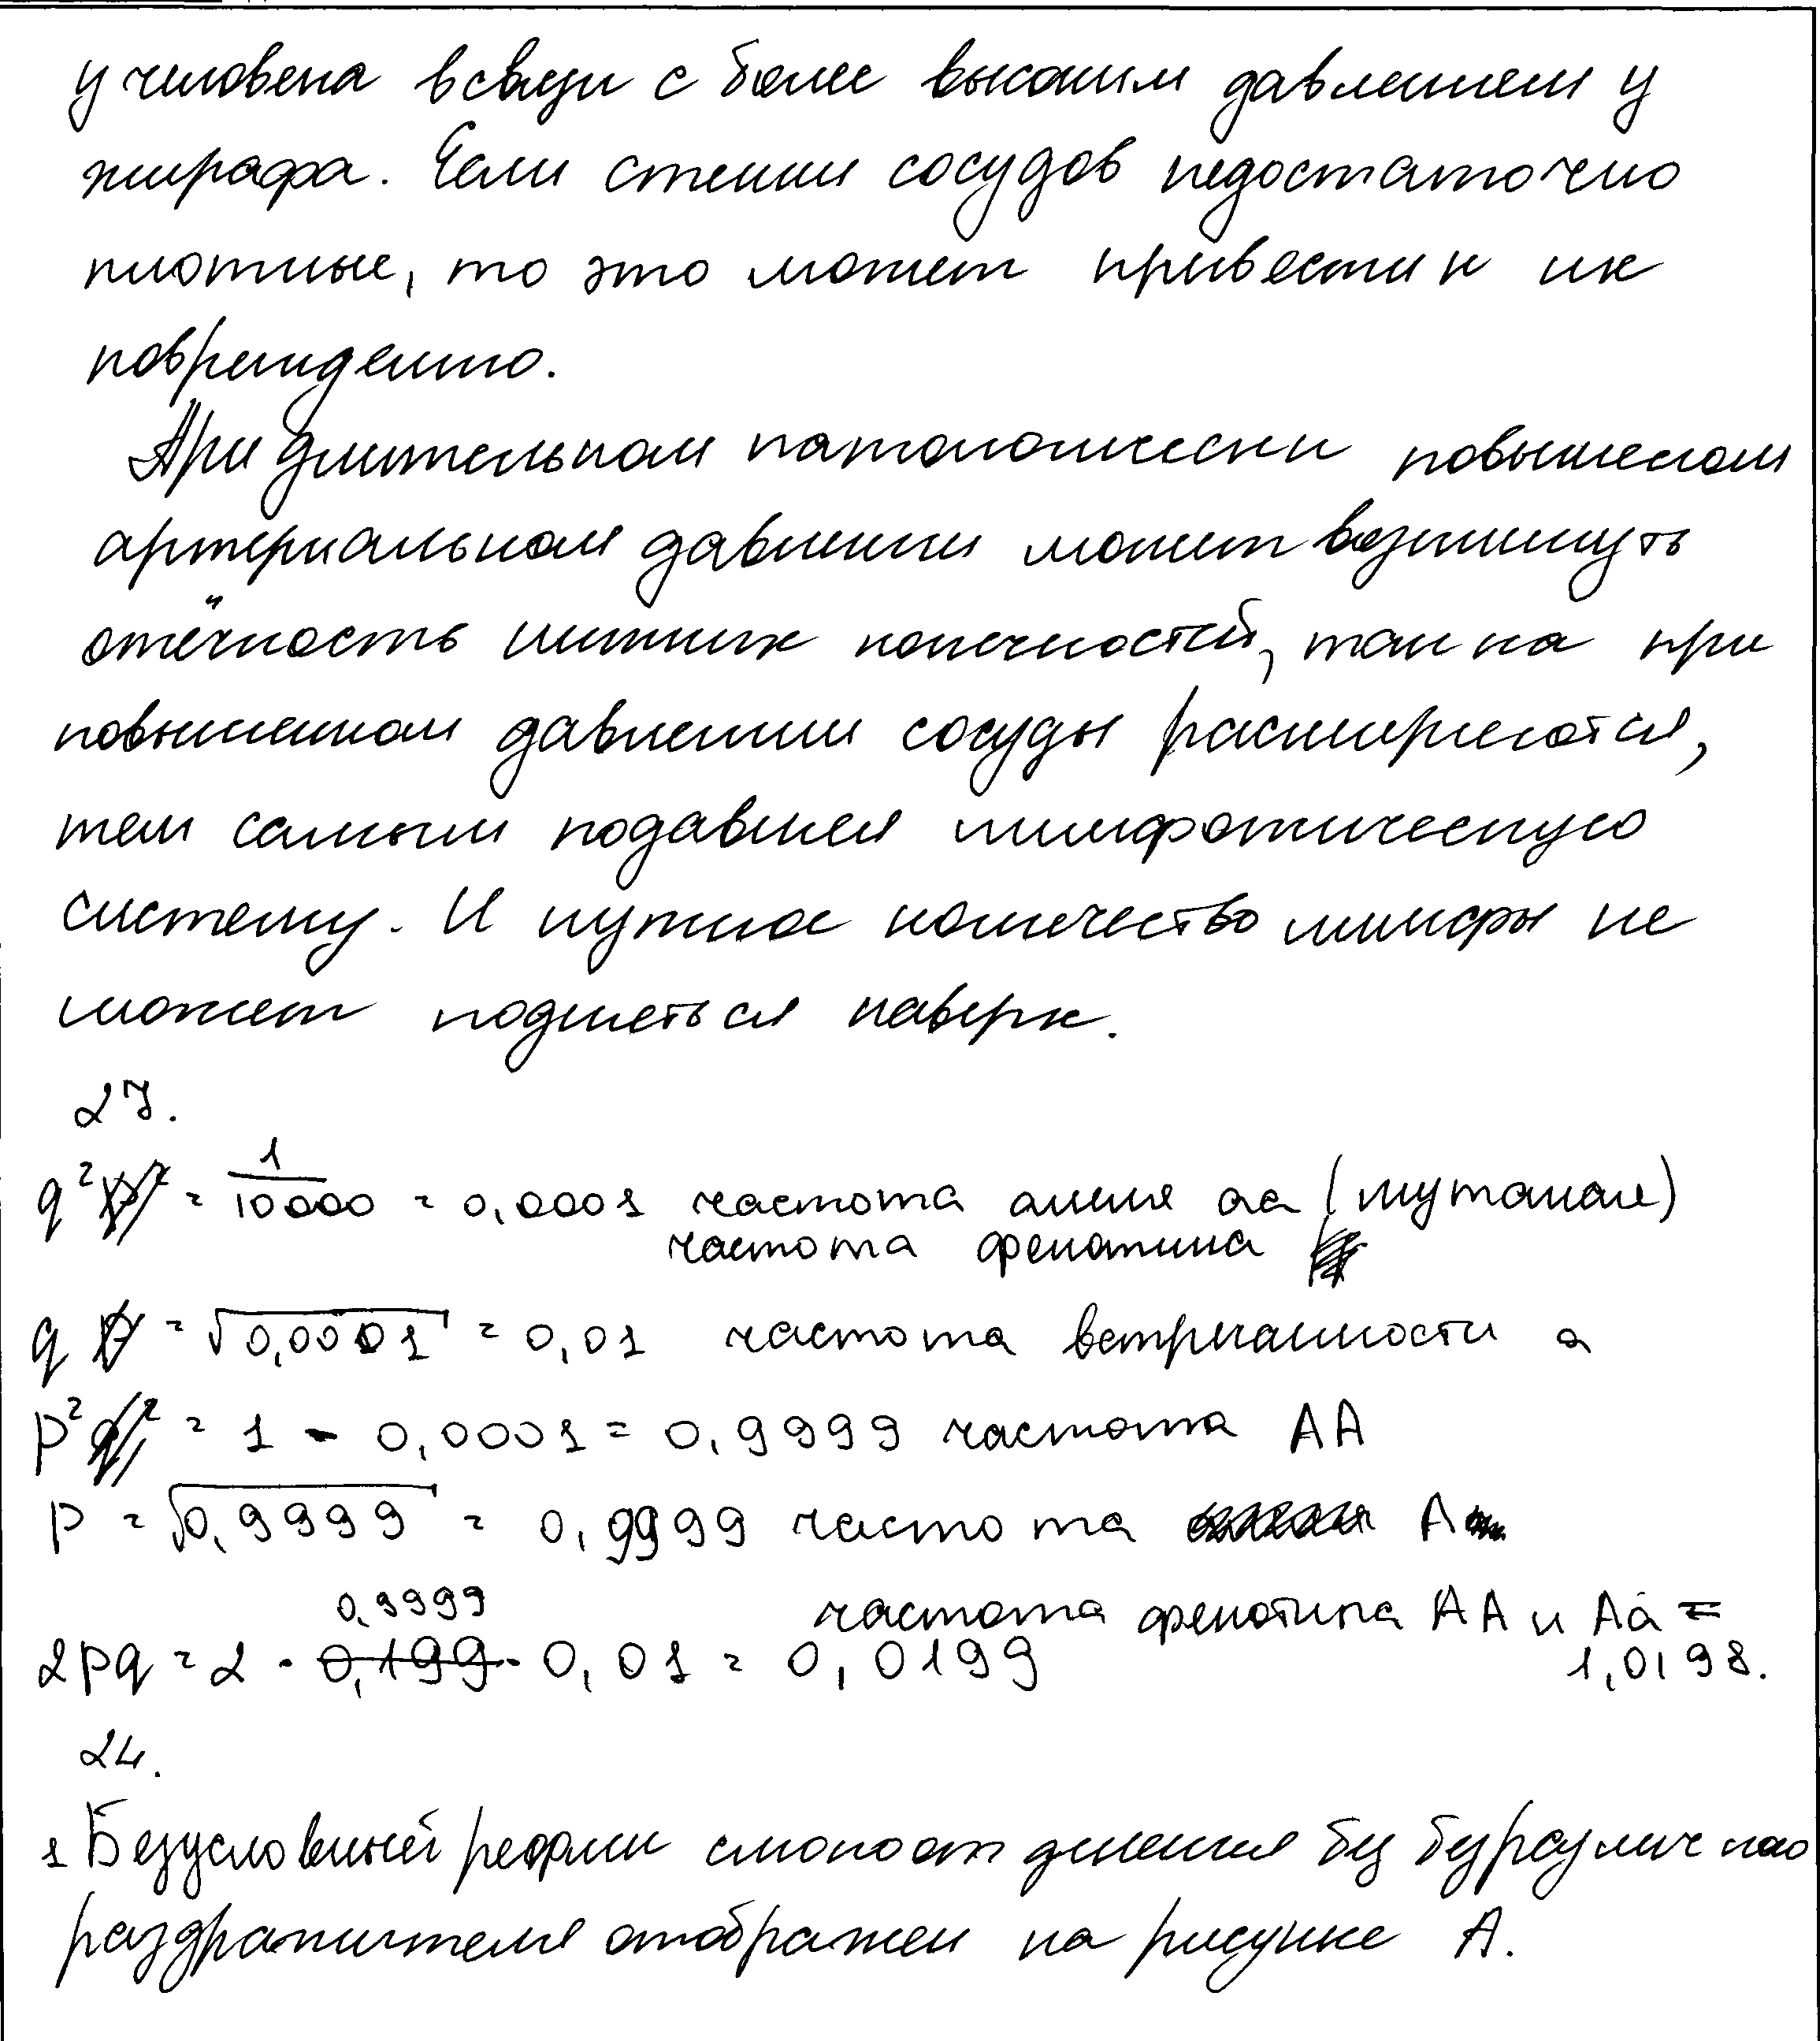 у человека в связи с более высоким давлением у
жирафа. Если стенки сосудов недостаточно
плотные, то это может привести к их
повреждению.
При длительном патологически повышеном
артериальном давлении может возникнуть
отёчность нижних конечностей, так ка при
повышенном давлении сосуды расширяются,
тем самым подавляя лимфотическую
систему. И нужное количество лимфы не
может подняться наверх.
27.
q² = 1/10000 = 0,0001 частота аллеля аа (мутаном)
частота фенотипа
q = √0,0001 = 0,01 частота встречанности а
p² = 1 - 0,0001 = 0,9999 частота АА
p = √0,9999 = 0,9999 частота А
0,9999 частота фенотипа АА и Аа =
2pq = 2 · 0,199 · 0,01 = 0,0199 1,0198.
24.
1 Безусловный рефлекс
раздражителя отображен на рисунке А.